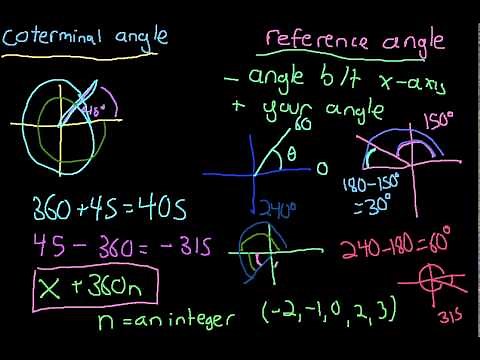 coterminal angle
reference angle
- angle b/t x-axis
+ your angle
45°
60
θ
0
150°
180-150°
=30°
360+45=405
240°
45 - 360 = -315
240-180=60°
x + 360n
315
n = an integer (-2, -1, 0, 2, 3)